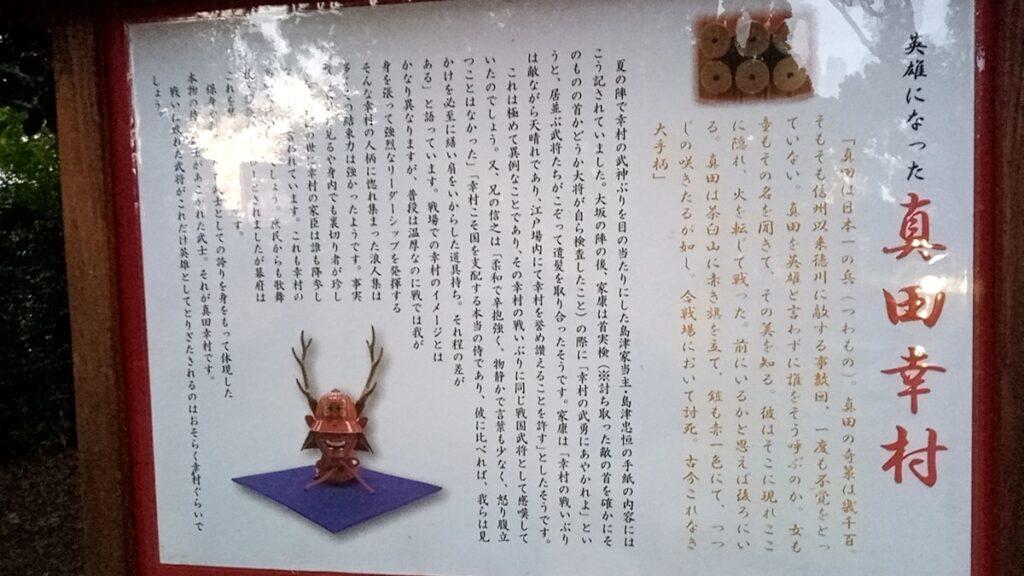 英雄になった
真田幸村
「真田は日本一の兵（つわもの）。真田の奇策は幾千百。
そもそも信州以来徳川に敵する事数回、一度も不覚をとっ
ていない。真田を英雄と言わずに誰をそう呼ぶのか。女も
童もその名を聞きて、その美を知る。彼はそこに現れここ
に隠れ、火を転じて戦った。前にいるかと思えば後ろにい
る。真田は茶臼山に赤き旗を立て、鎧も赤一色にて、つつ
じの咲きたるが如し。合戦場において討死。古今これなき
大手柄」
夏の陣で幸村の武神ぶりを目の当たりにした島津家当主・島津忠恒の手紙の内容には
こう記されていました。大坂の陣の後、家康は首実検（※討ち取った敵の首を確かにそ
のものの首かどうか大将が自ら検査したこと）の際に「幸村の武勇にあやかれよ」とい
うと、居並ぶ武将たちがこぞって遺髪を取り合ったそうです。家康は「幸村の戦いぶり
は敵ながら天晴れであり、江戸城内にて幸村を誉め讃えることを許す」としたそうです。
これは極めて異例なことであり、その幸村の戦いぶりに同じ戦国武将として感嘆して
いたのでしょう。又、兄の信之は「柔和で辛抱強く、物静かで言葉も少なく、怒り腹立
つことはなかった」「幸村こそ国を支配する本当の侍であり、彼に比べれば、我らは見
かけを必至に繕い肩をいからした道具持ち。それ程の差が
ある」と語っています。戦場での幸村のイメージとは
かなり異なりますが、普段は温厚なのに戦では我が
身を張って強烈なリーダーシップを発揮する
そんな幸村の人柄に惚れ集まった浪人集は
の結束力は強かったようです。事実
見るや身内でも裏切り者が珍し
の世に幸村の家臣は誰も降参し
れています。これも幸村の
しょう。庶民からも歌舞
とされましたが幕府は
これを
す。
保身
武士としての誇りを身をもって体現した
本物の
があこがれた武士。それが真田幸村です。
戦いに敗れた武将がこれだけ英雄としてとりざたされるのはおそらく幸村ぐらいで
しょう。